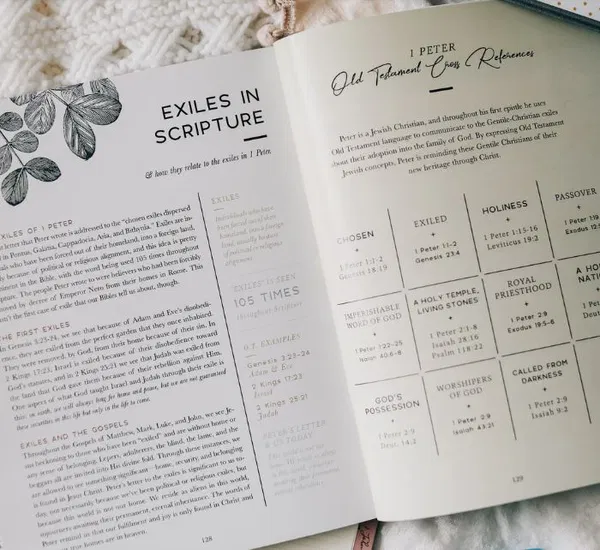 EXILES IN
SCRIPTURE
& how they relate to the exiles in 1 Peter
EXILES OF 1 PETER
letter that Peter wrote is addressed to the "chosen exiles dispersed
in Pontus, Galatia, Cappadocia, Asia, and Bithynia." Exiles are in-
who have been forced out of their homeland, into a foreign land,
because of political or religious alignment, and this idea is pretty
in the Bible, with the word being used 105 times throughout
Scripture. The people Peter wrote to were believers who had been forcibly
by decree of Emperor Nero from their homes in Rome. This
isn't the first case of exile that our Bibles tell us about, though.
THE FIRST EXILES
In Genesis 3:23-24, we see that because of Adam and Eve's disobedi-
ence, they are exiled from the perfect garden that they once inhabited.
They were removed, by God, from their home because of their sin. In
2 Kings 17:23, Israel is exiled because of their disobedience toward
God's statutes, and in 2 Kings 25:21 we see that Judah was exiled from
the land that God gave them because of their rebellion against Him.
One aspect of what God taught Israel and Judah through their exile is
this: on earth, we will always long for home and peace, but we are not guaranteed
these securities in this life but only in the life to come.
EXILES AND THE GOSPELS
Throughout the Gospels of Matthew, Mark, Luke, and John, we see Je-
sus beckoning to those who have been "exiled" and are without home or
any sense of belonging. Lepers, adulterers, the blind, the lame, and the
beggars all are invited into His divine fold. Through these instances, we
are allowed to see something significant—home, security, and belonging
is found in Jesus Christ. Peter's letter to the exiles is significant to us to-
day, not necessarily because we've been political or religious exiles, but
because this world is not our home. We reside as aliens in this world,
sojourners awaiting their permanent, eternal inheritance. The words of
remind us that our fulfilment and joy is only found in Christ and
true homes are in heaven.
EXILES
Individuals who have
been forced out of their
homeland, into a foreign
land, usually because
of political or religious
alignment.
"EXILE" IS SEEN
105 TIMES
throughout Scripture
O.T. EXAMPLES
Genesis 3:23-24
Adam & Eve
2 Kings 17:23
Israel
2 Kings 25:21
Judah
PETER'S LETTER
& US TODAY
128
1 PETER
Old Testament Cross References
Peter is a Jewish Christian, and throughout his first epistle he uses
Old Testament language to communicate to the Gentile-Christian exiles
about their adoption into the family of God. By expressing Old Testament
Jewish concepts, Peter is reminding these Gentile Christians of their
new heritage through Christ.
CHOSEN
+
1 Peter 1:1-2
Genesis 18:19
EXILED
+
1 Peter 1:1-2
Genesis 23:4
HOLINESS
+
1 Peter 1:15-16
Leviticus 19:2
PASSOVER
+
1 Peter 1:19
Exodus 12:5
IMPERISHABLE
WORD OF GOD
+
1 Peter 1:22-25
Isaiah 40:6-8
A HOLY TEMPLE,
LIVING STONES
+
1 Peter 2:1-8
Isaiah 28:16
Psalm 118:22
ROYAL
PRIESTHOOD
+
1 Peter 2:9
Exodus 19:5-6
A HO
NATI
+
1 Pet
Deut.
GOD'S
POSSESSION
+
1 Peter 2:9
Deut. 14:2
WORSHIPERS
OF GOD
+
1 Peter 2:9
Isaiah 43:21
CALLED FROM
DARKNESS
+
1 Peter 2:9
Isaiah 9:2
129